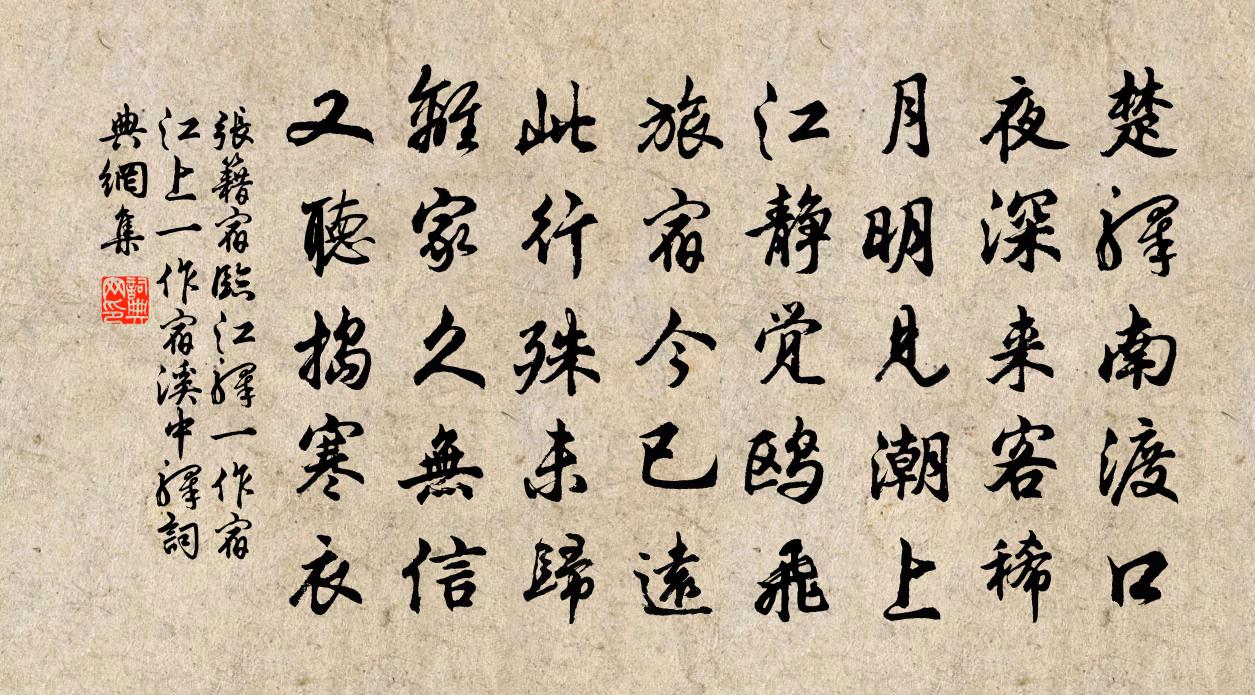 楚驛南渡口
夜深来客稀
月明見潮上
江静覚鸥飛
旅宿今已遠
此行殊未歸
離家久無信
又聽搗寒衣
張籍宿臨江驛一作宿
江上一作宿溪中驛詞
典網集
詞典
网印